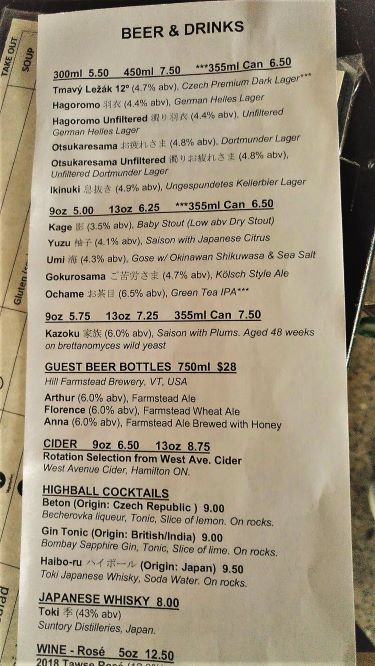 TAKE OUT
SOUP
BEER & DRINKS
300ml 5.50 450ml 7.50 ***355ml Can 6.50
Tmavý Ležák 12º (4.7% abv), Czech Premium Dark Lager***
Hagoromo 羽衣 (4.4% abv), German Helles Lager
Hagoromo Unfiltered 濁り羽衣 (4.4% abv), Unfiltered
German Helles Lager
Otsukaresama お疲れさま (4.8% abv), Dortmunder Lager
Otsukaresama Unfiltered 濁りお疲れさま (4.8% abv),
Unfiltered Dortmunder Lager
Ikinuki 息抜き (4.9% abv), Ungespundetes Kellerbier Lager
9oz 5.00 13oz 6.25 ***355ml Can 6.50
Kage 影 (3.5% abv), Baby Stout (Low abv Dry Stout)
Yuzu 柚子 (4.1% abv), Saison with Japanese Citrus
Umi 海 (4.3% abv), Gose w/ Okinawan Shikuwasa & Sea Salt
Gokurosama ご苦労さま (4.7% abv), Kölsch Style Ale
Ochame お茶目 (6.5% abv), Green Tea IPA***
9oz 5.75 13oz 7.25 355ml Can 7.50
Kazoku 家族 (6.0% abv), Saison with Plums. Aged 48 weeks
on brettanomyces wild yeast
GUEST BEER BOTTLES 750ml $28
Hill Farmstead Brewery, VT, USA
Arthur (6.0% abv), Farmstead Ale
Florence (6.0% abv), Farmstead Wheat Ale
Anna (6.0% abv), Farmstead Ale Brewed with Honey
CIDER 9oz 6.50 13oz 8.75
Rotation Selection from West Ave. Cider
West Avenue Cider, Hamilton ON.
HIGHBALL COCKTAILS
Beton (Origin: Czech Republic ) 9.00
Becherovka liqueur, Tonic, Slice of lemon. On rocks.
Gin Tonic (Origin: British/India) 9.00
Bombay Sapphire Gin, Tonic, Slice of lime. On rocks.
Haibo-ru ハイボール (Origin: Japan) 9.50
Toki Japanese Whisky, Soda Water. On rocks.
JAPANESE WHISKY 8.00
Toki 季 (43% abv)
Suntory Distilleries, Japan.
WINE - Rosé 5oz 12.50
2018 Tawse Rosé